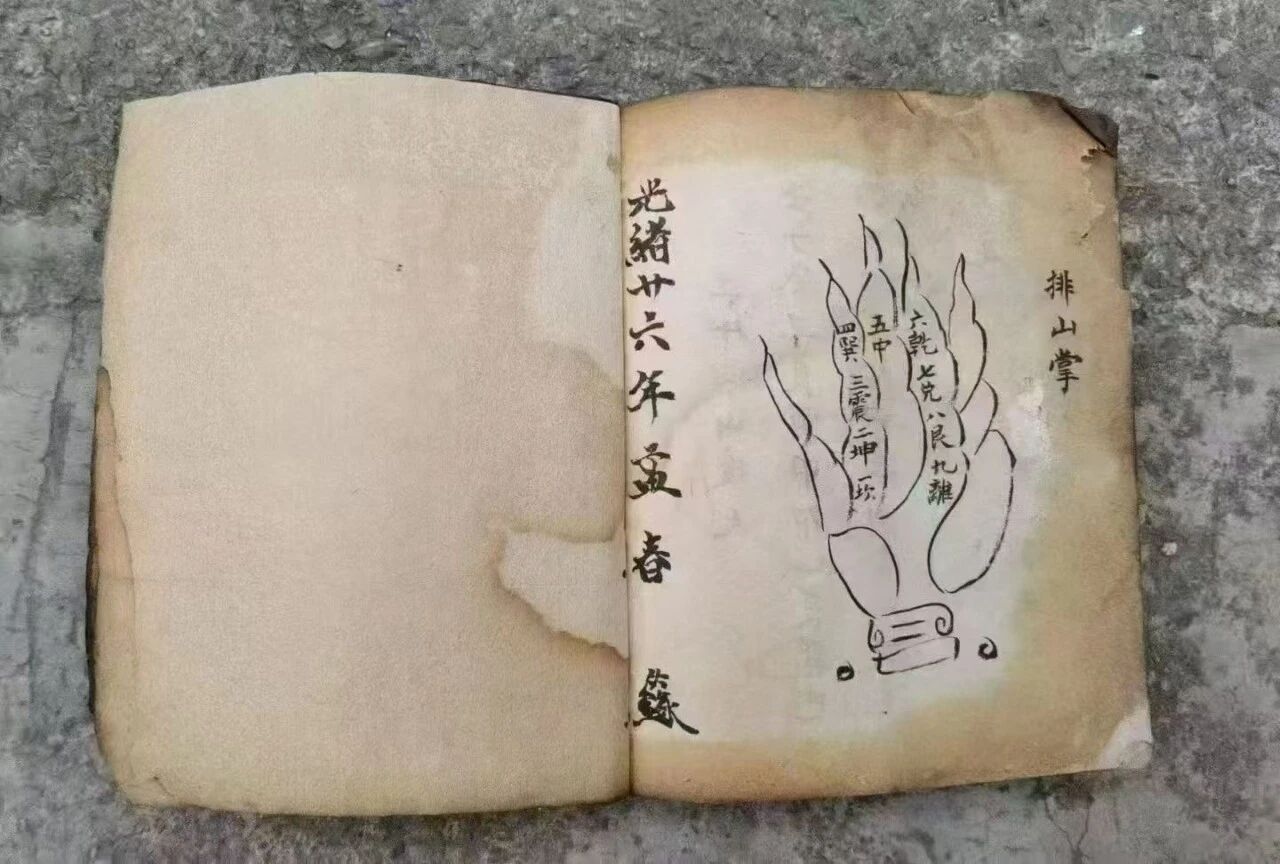 排山掌
六乾七兑八艮九離
五中
四巽三震二坤一坎
光緒廿六年孟春